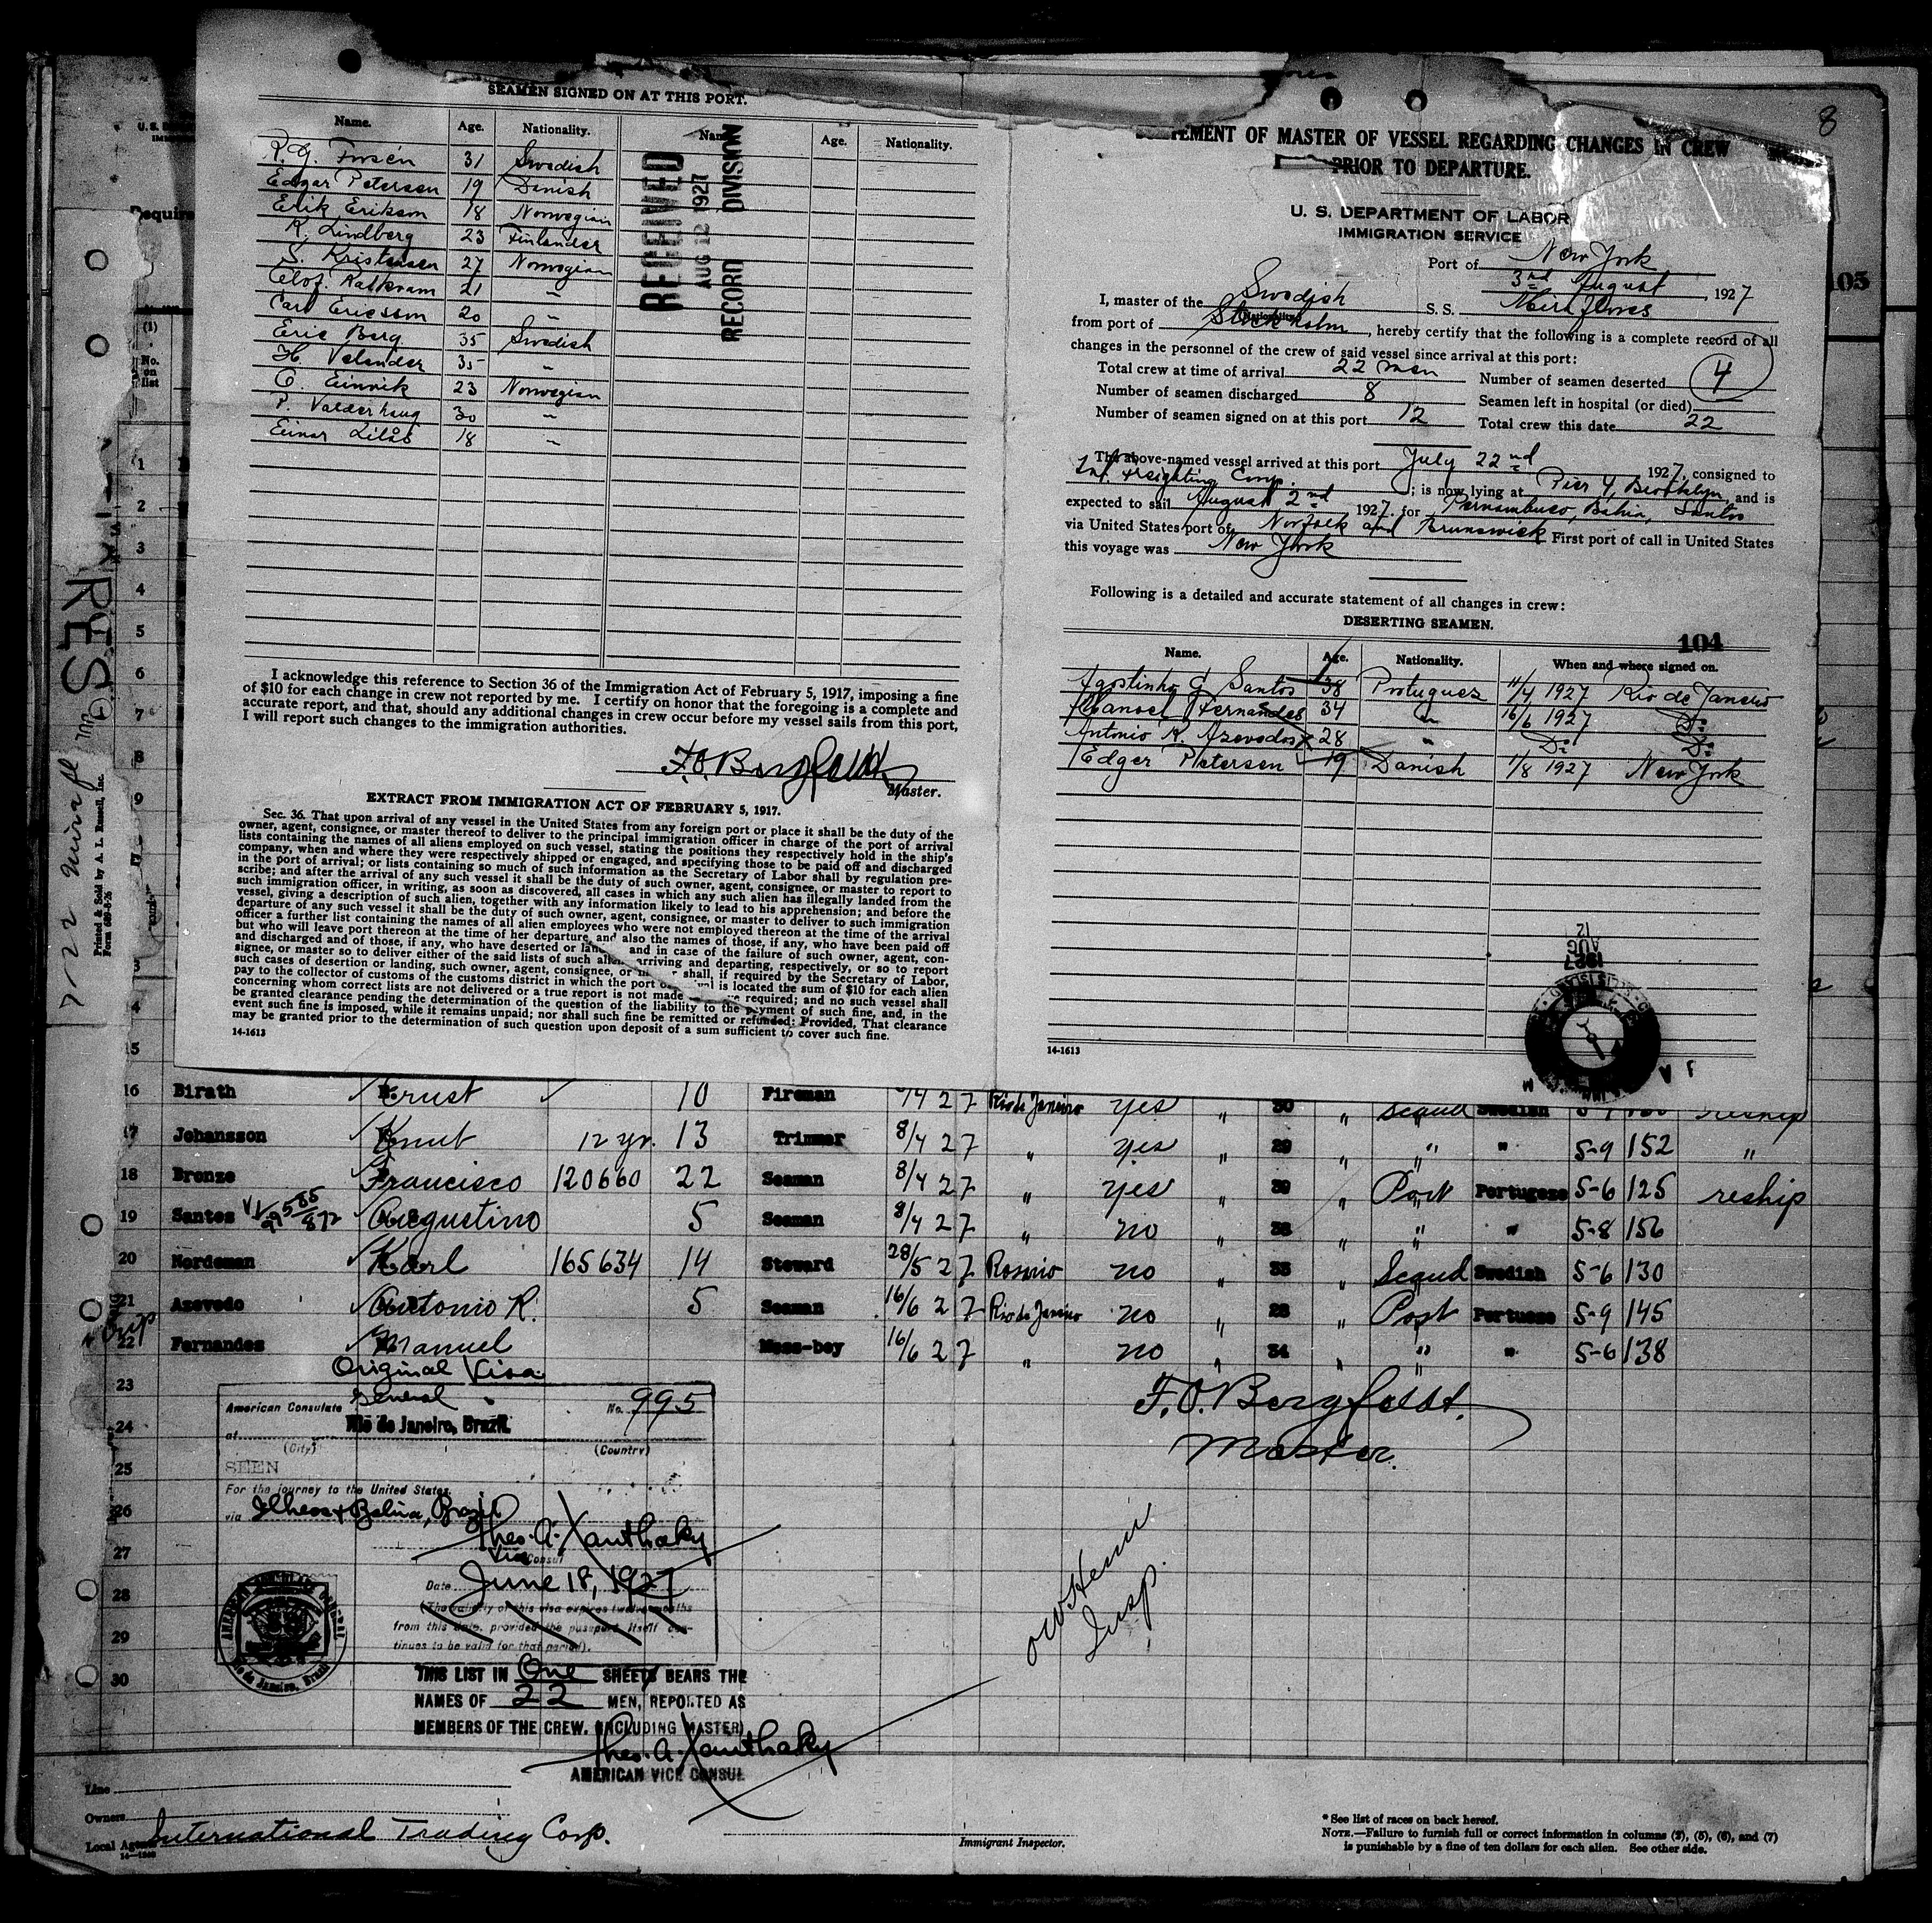 SEAMEN SIGNED ON AT THIS PORT.
Name. Age. Nationality. Name. Age. Nationality.
31 Swedish
Edgar Petersen 19 Danish
Erik Erikson 18 Norwegian
K. Lindberg 23 Finlander
S. Kristensen 27 Norwegian
21 "
Carl Ericsson 20 "
Eric Berg 35 Swedish
H. Velander 35 "
23 Norwegian
P. Valderhaug 30 "
Einar 18 "
RECEIVED
AUG 12 1927
RECORD DIVISION
I acknowledge this reference to Section 36 of the Immigration Act of February 5, 1917, imposing a fine
of $10 for each change in crew not reported by me. I certify on honor that the foregoing is a complete and
accurate report, and that, should any additional changes in crew occur before my vessel sails from this port,
I will report such changes to the immigration authorities.
F.O. Bergfeldt
Master.
EXTRACT FROM IMMIGRATION ACT OF FEBRUARY 5, 1917.
Sec. 36. That upon arrival of any vessel in the United States from any foreign port or place it shall be the duty of the
owner, agent, consignee, or master thereof to deliver to the principal immigration officer in charge of the port of arrival
lists containing the names of all aliens employed on such vessel, stating the positions they respectively hold in the ship's
company, when and where they were respectively shipped or engaged, and specifying those to be paid off and discharged
in the port of arrival; or lists containing so much of such information as the Secretary of Labor shall by regulation pre-
scribe; and after the arrival of any such vessel it shall be the duty of such owner, agent, consignee, or master to report to
such immigration officer, in writing, as soon as discovered, all cases in which any such alien has illegally landed from the
vessel, giving a description of such alien, together with any information likely to lead to his apprehension; and before the
departure of any such vessel it shall be the duty of such owner, agent, consignee, or master to deliver to such immigration
officer a further list containing the names of all alien employees who were not employed thereon at the time of the arrival
but who will leave port thereon at the time of her departure, and also the names of those, if any, who have been paid off
and discharged and of those, if any, who have deserted or and in case of the failure of such owner, agent, con-
signee, or master so to deliver either of the said lists of such arriving and departing, respectively, or so to report
such cases of desertion or landing, such owner, agent, consignee, or shall, if required by the Secretary of Labor,
pay to the collector of customs of the customs district in which the port is located the sum of $10 for each alien
concerning whom correct lists are not delivered or a true report is not made required; and no such vessel shall
be granted clearance pending the determination of the question of the liability to the payment of such fine, and, in the
event such fine is imposed, while it remains unpaid; nor shall such fine be remitted or refunded: Provided, That clearance
may be granted prior to the determination of such question upon deposit of a sum sufficient to cover such fine.
14-1613
8
STATEMENT OF MASTER OF VESSEL REGARDING CHANGES IN CREW
PRIOR TO DEPARTURE.
U. S. DEPARTMENT OF LABOR
IMMIGRATION SERVICE
Port of New York
3rd August, 1927
I, master of the Swedish S. S. Miraflores
from port of Stockholm, hereby certify that the following is a complete record of all
changes in the personnel of the crew of said vessel since arrival at this port:
Total crew at time of arrival 22 men Number of seamen deserted 4
Number of seamen discharged 8 Seamen left in hospital (or died)
Number of seamen signed on at this port 12 Total crew this date 22
The above-named vessel arrived at this port July 22nd 1927, consigned to
Int. Freighting Corp. ; is now lying at Pier 4, Brooklyn, and is
expected to sail August 2nd 1927, for Pernambuco, Bahia, Santos
via United States port of Norfolk and Brunswick First port of call in United States
this voyage was New York
Following is a detailed and accurate statement of all changes in crew:
DESERTING SEAMEN.
104
Name. Age. Nationality. When and where signed on.
Agostinho G Santos 38 Portuguez 11/4 1927 Rio de Janeiro
Manoel Fernandes 34 " 16/6 1927 Do
Antonio R. Azevedos 28 " Do Do
Edger Petersen 19 Danish 1/8 1927 New York
14-1613
1927
AUG
12
103
16 Birath Ernst 10 Fireman 27 Rio de Janeiro yes " 30 " Scand Swedish reship
17 Johansson Knut 12 yr. 13 Trimmer 8/4 27 " yes " 29 " " " 5-9 152 "
18 Bronze Francisco 120660 22 Seaman 8/4 27 " yes " 39 " Port Portugese 5-6 125 reship
19 Santos Augustino 5 Seaman 8/4 27 " no " 38 " " " 5-8 156
20 Nordeman Karl 165634 14 Steward 28/5 27 Rosario no " 33 " Scand Swedish 5-6 130
21 Azevedo Antonio R. 5 Seaman 16/6 27 Rio de Janeiro no " 28 " Port Portuese 5-9 145
22 Fernandes Manuel Mess-boy 16/6 27 " no " 34 " " " 5-6 138
Original Visa
23
24
25
26
27
28
29
30
American Consulate General No. 995
at Rio de Janeiro, Brazil.
(City) (Country)
SEEN
For the journey to the United States.
via Ilheos & Bahia, Brazil
Theo. A. Xanthaky
Vice Consul
Date June 18, 1927
(The validity of this visa expires twelve months
from this date, provided the passport itself con-
tinues to be valid for that period).
THIS LIST IN One SHEETS BEARS THE
NAMES OF 22 MEN, REPORTED AS
MEMBERS OF THE CREW. (INCLUDING MASTER)
Theo. A. Xanthaky
AMERICAN VICE CONSUL
F.O. Bergfeldt.
Master.
Insp.
Line
Owners
Local Agents International Trading Corp.
Immigrant Inspector.
* See list of races on back hereof.
NOTE.—Failure to furnish full or correct information in columns (3), (5), (6), and (7)
is punishable by a fine of ten dollars for each alien. See other side.
Printed & Sold by A. L. Russell, Inc.